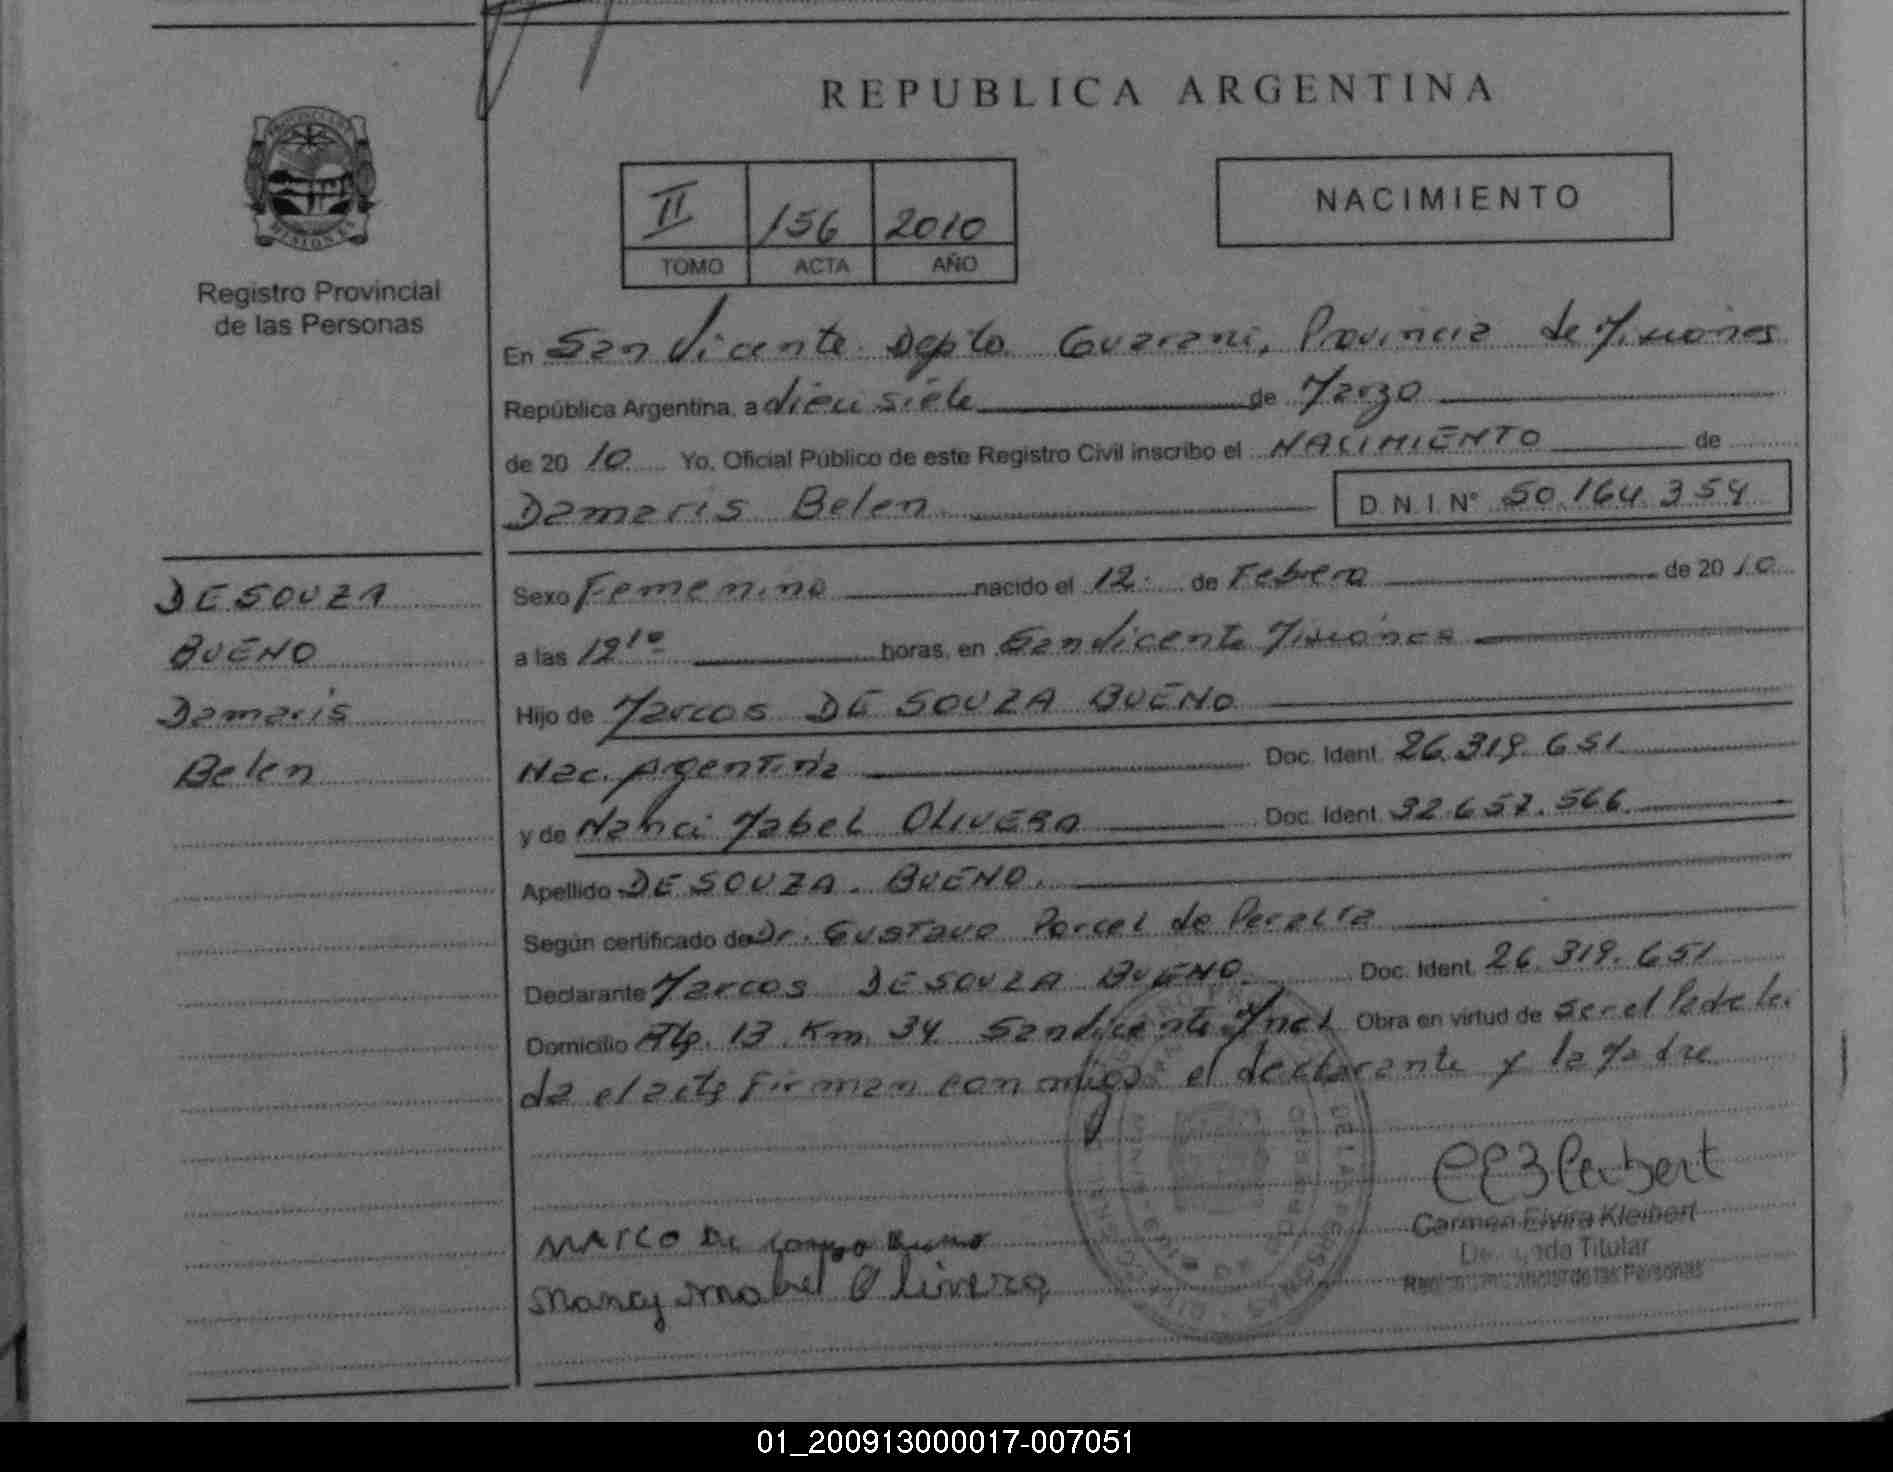 REPUBLICA ARGENTINA
PROVINCIA DE
MISIONES
Registro Provincial
de las Personas
II 156 2010
TOMO ACTA AÑO
NACIMIENTO
En San Vicente Depto. Guarani, Provincia de Misiones
República Argentina, a diecisiete de Marzo
de 20 10 Yo, Oficial Público de este Registro Civil inscribo el NACIMIENTO de
Damaris Belen D.N.I. N° 50.164.354
DE SOUZA
BUENO
Damaris
Belen
Sexo Femenino nacido el 12 de Febrero de 20 10
a las horas, en San Vicente Misiones
Hijo de Marcos DE SOUZA BUENO
Nac. Argentina Doc. Ident. 26.319.651
y de Nanci Mabel OLIVERA Doc. Ident. 32.657.566
Apellido DE SOUZA BUENO
Según certificado de Dr. Gustavo Porcel de Peralta
Declarante Marcos DE SOUZA BUENO Doc. Ident. 26.319.651
Domicilio Km. 34 San Vicente Obra en virtud de ser el Padre
da el acta Firman conmigo el declarante y la Madre
MARCO De Bueno
Nancy Mabel Olivera
Carmen Elvira Kleibert
Titular
de las Personas
01_200913000017-007051